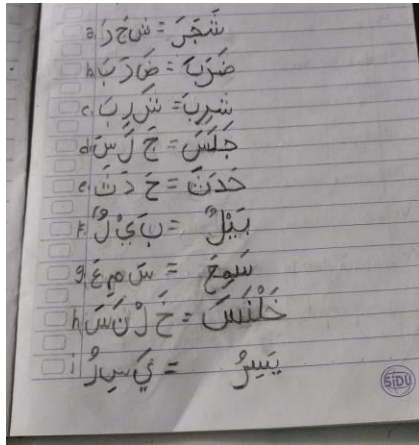 a. شَجَرَ = شَ جَ رَ
b. ضَرَبَ = ضَ رَ بَ
c. شَرِبَ = شَ رِ بَ
d. جَلَسَ = جَ لَ سَ
e. حَدَثَ = حَ دَ ثَ
f. بَيْلٌ = بَ يْ لٌ
g. سَمِعَ = سَ مِ عَ
h. خَلْنَسَ = خَ لْ نَ سَ
i. يَسِرُ = يَ سِ رُ
SiDU